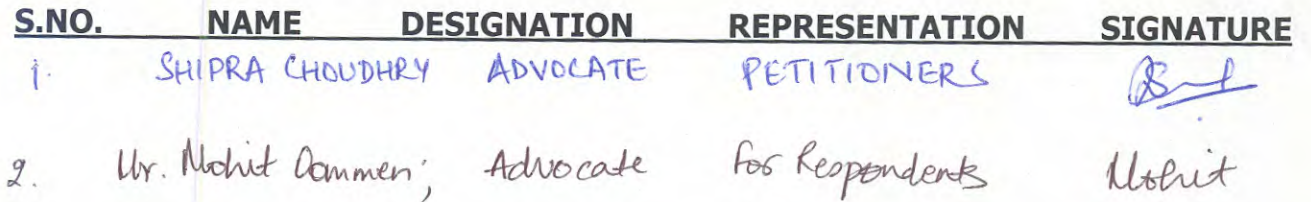 S.NO. NAME DESIGNATION REPRESENTATION SIGNATURE
1. SHIPRA CHOUDHRY ADVOCATE PETITIONERS
2. Mr. Mohit Advocate for Respondents Mohit